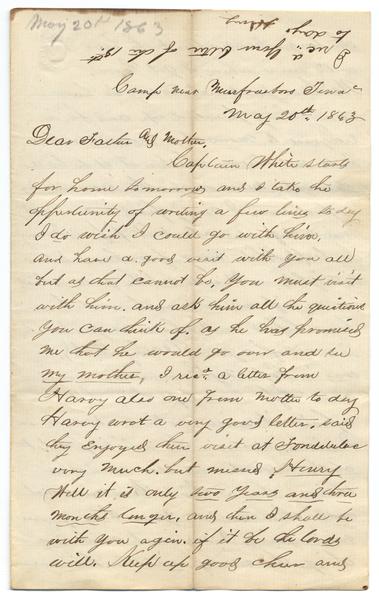 May 20th 1863
I rec.d Your letter of the 18th
to day Henry
Camp near Murfreesboro Tenn
May 20th 1863
Dear Father And Mother,
Captain White starts
for home tomorrow and I take the
oppertunity of writing a few lines to day
I do wish I could go with him,
and have a good visit with you all
but as that cannot be, You must visit
with him. and ask him all the quetions
You can think of. as he has promised
me that he would go over and see
my mother, I rect a letter from
Harvy also one from Mother to day
Harvy wrot a very good letter. said
they Enjoyed their visit at Fonddulac
very Much. but missed Henry
Well it is only two Years and three
months longer. and then I shall be
with you again. if it be the lords
will. Keep up good cheer and